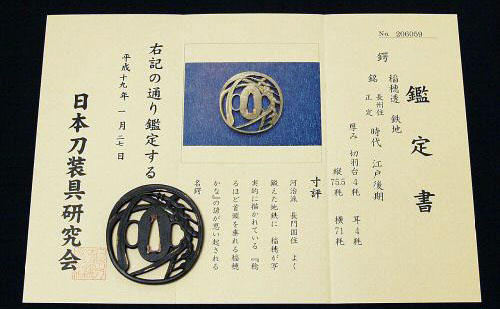 No. 206059
鑑定書
鍔 稲穂透 鉄地
銘 長州住 正定 時代 江戸後期
厚み 切羽台4粍 耳4粍
縦75.5粍 横71粍
寸評
河治派 長門国住 よく
鍛えた地鉄に 稲穂が写
実的に描かれている 『稔
るほど首頭を垂れる稲穂
かな』の諺が思い起される
名鍔
右記の通り鑑定する
平成十九年 一月 二七日
日本刀装具研究会